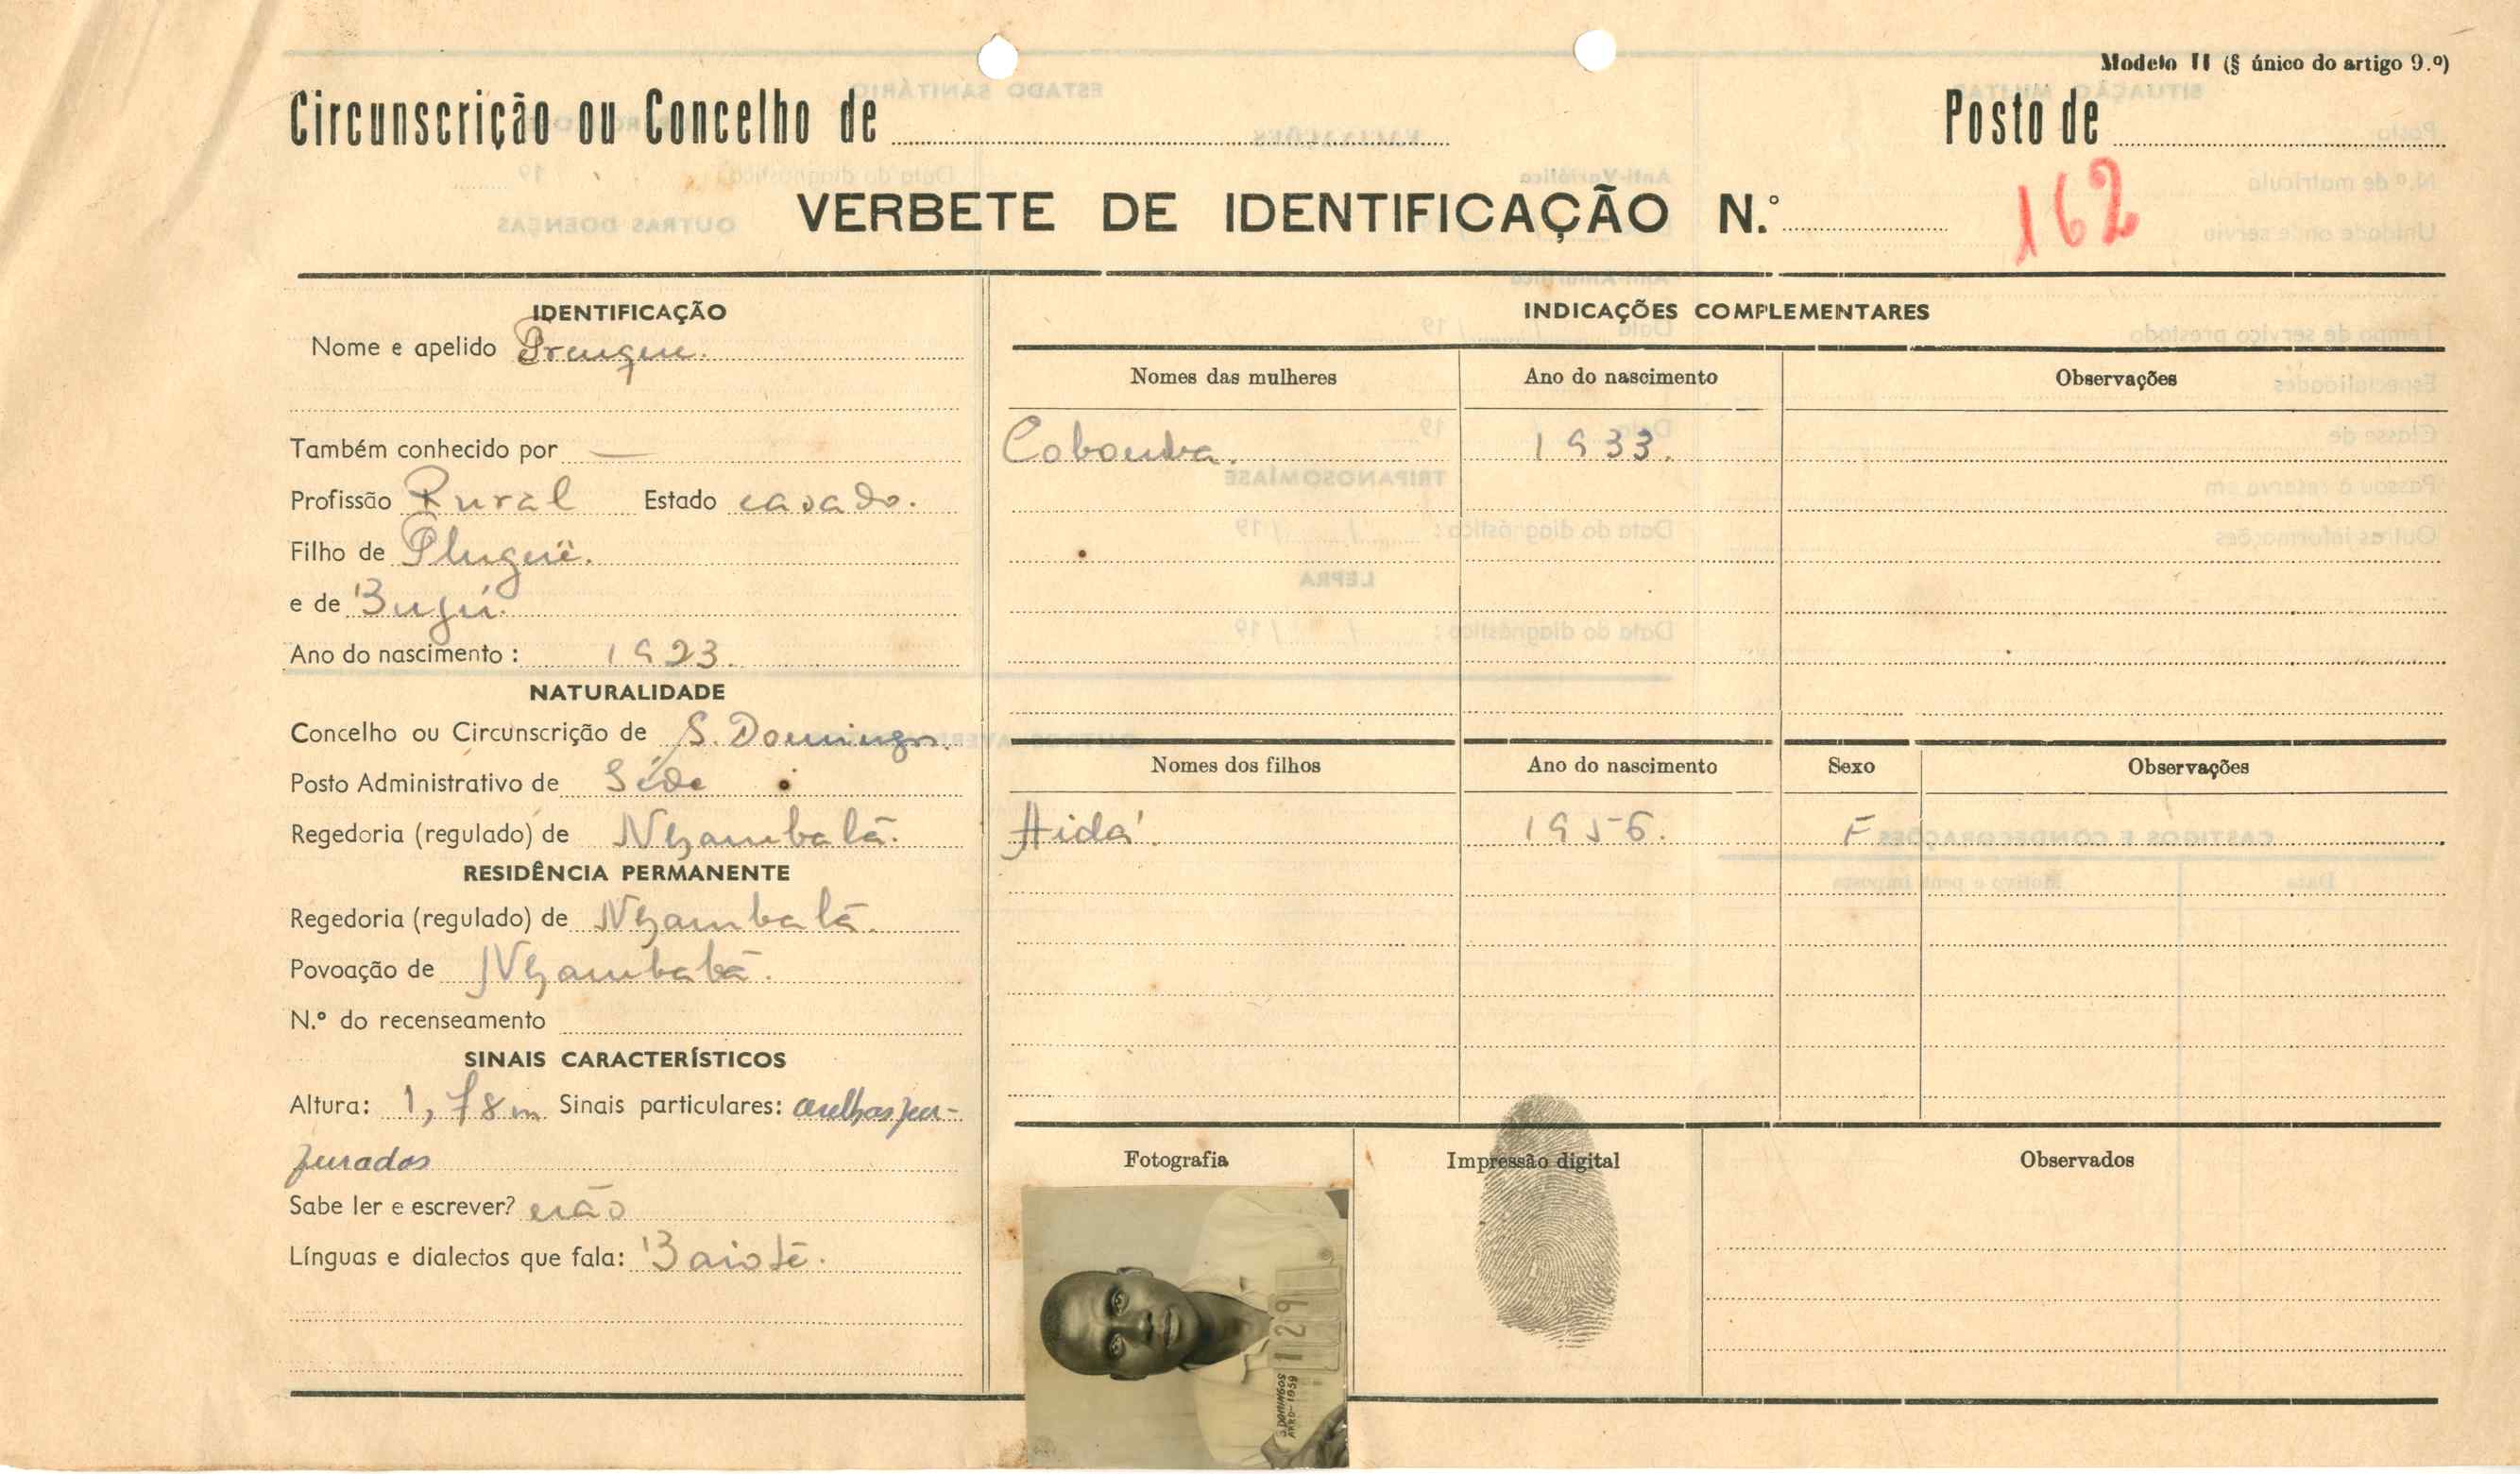 Modelo II (§ único do artigo 9.º)
Circunscrição ou Concelho de
Posto de
VERBETE DE IDENTIFICAÇÃO N.º
162
IDENTIFICAÇÃO
Nome e apelido
Também conhecido por —
Profissão Rural Estado casado.
Filho de
e de
Ano do nascimento: 1923.
NATURALIDADE
Concelho ou Circunscrição de S. Domingos.
Posto Administrativo de Séde
Regedoria (regulado) de Nhambalã.
RESIDÊNCIA PERMANENTE
Regedoria (regulado) de Nhambalã.
Povoação de
N.º do recenseamento
SINAIS CARACTERÍSTICOS
Altura: 1,78m Sinais particulares: orelhas per-
furadas
Sabe ler e escrever? não
Línguas e dialectos que fala: Baiote.
INDICAÇÕES COMPLEMENTARES
Nomes das mulheres Ano do nascimento Observações
1933.
Nomes dos filhos Ano do nascimento Sexo Observações
Aidá. 1956. F
Fotografia Impressão digital Observados
129
S. DOMINGOS
1959